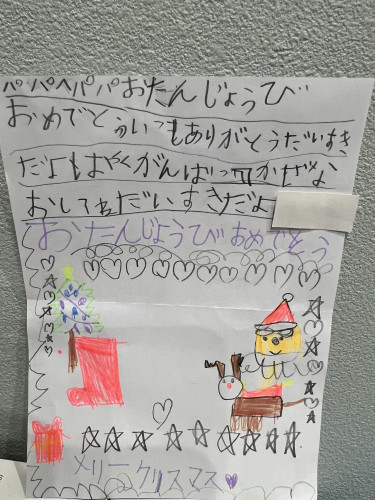 パパへパパおたんじょうび
おめでとういつもありがとうだいすき
だよもはやくがんばってかぜな
おしてねだいすきだよ
おたんじょうびおめでとう
メリークリスマス